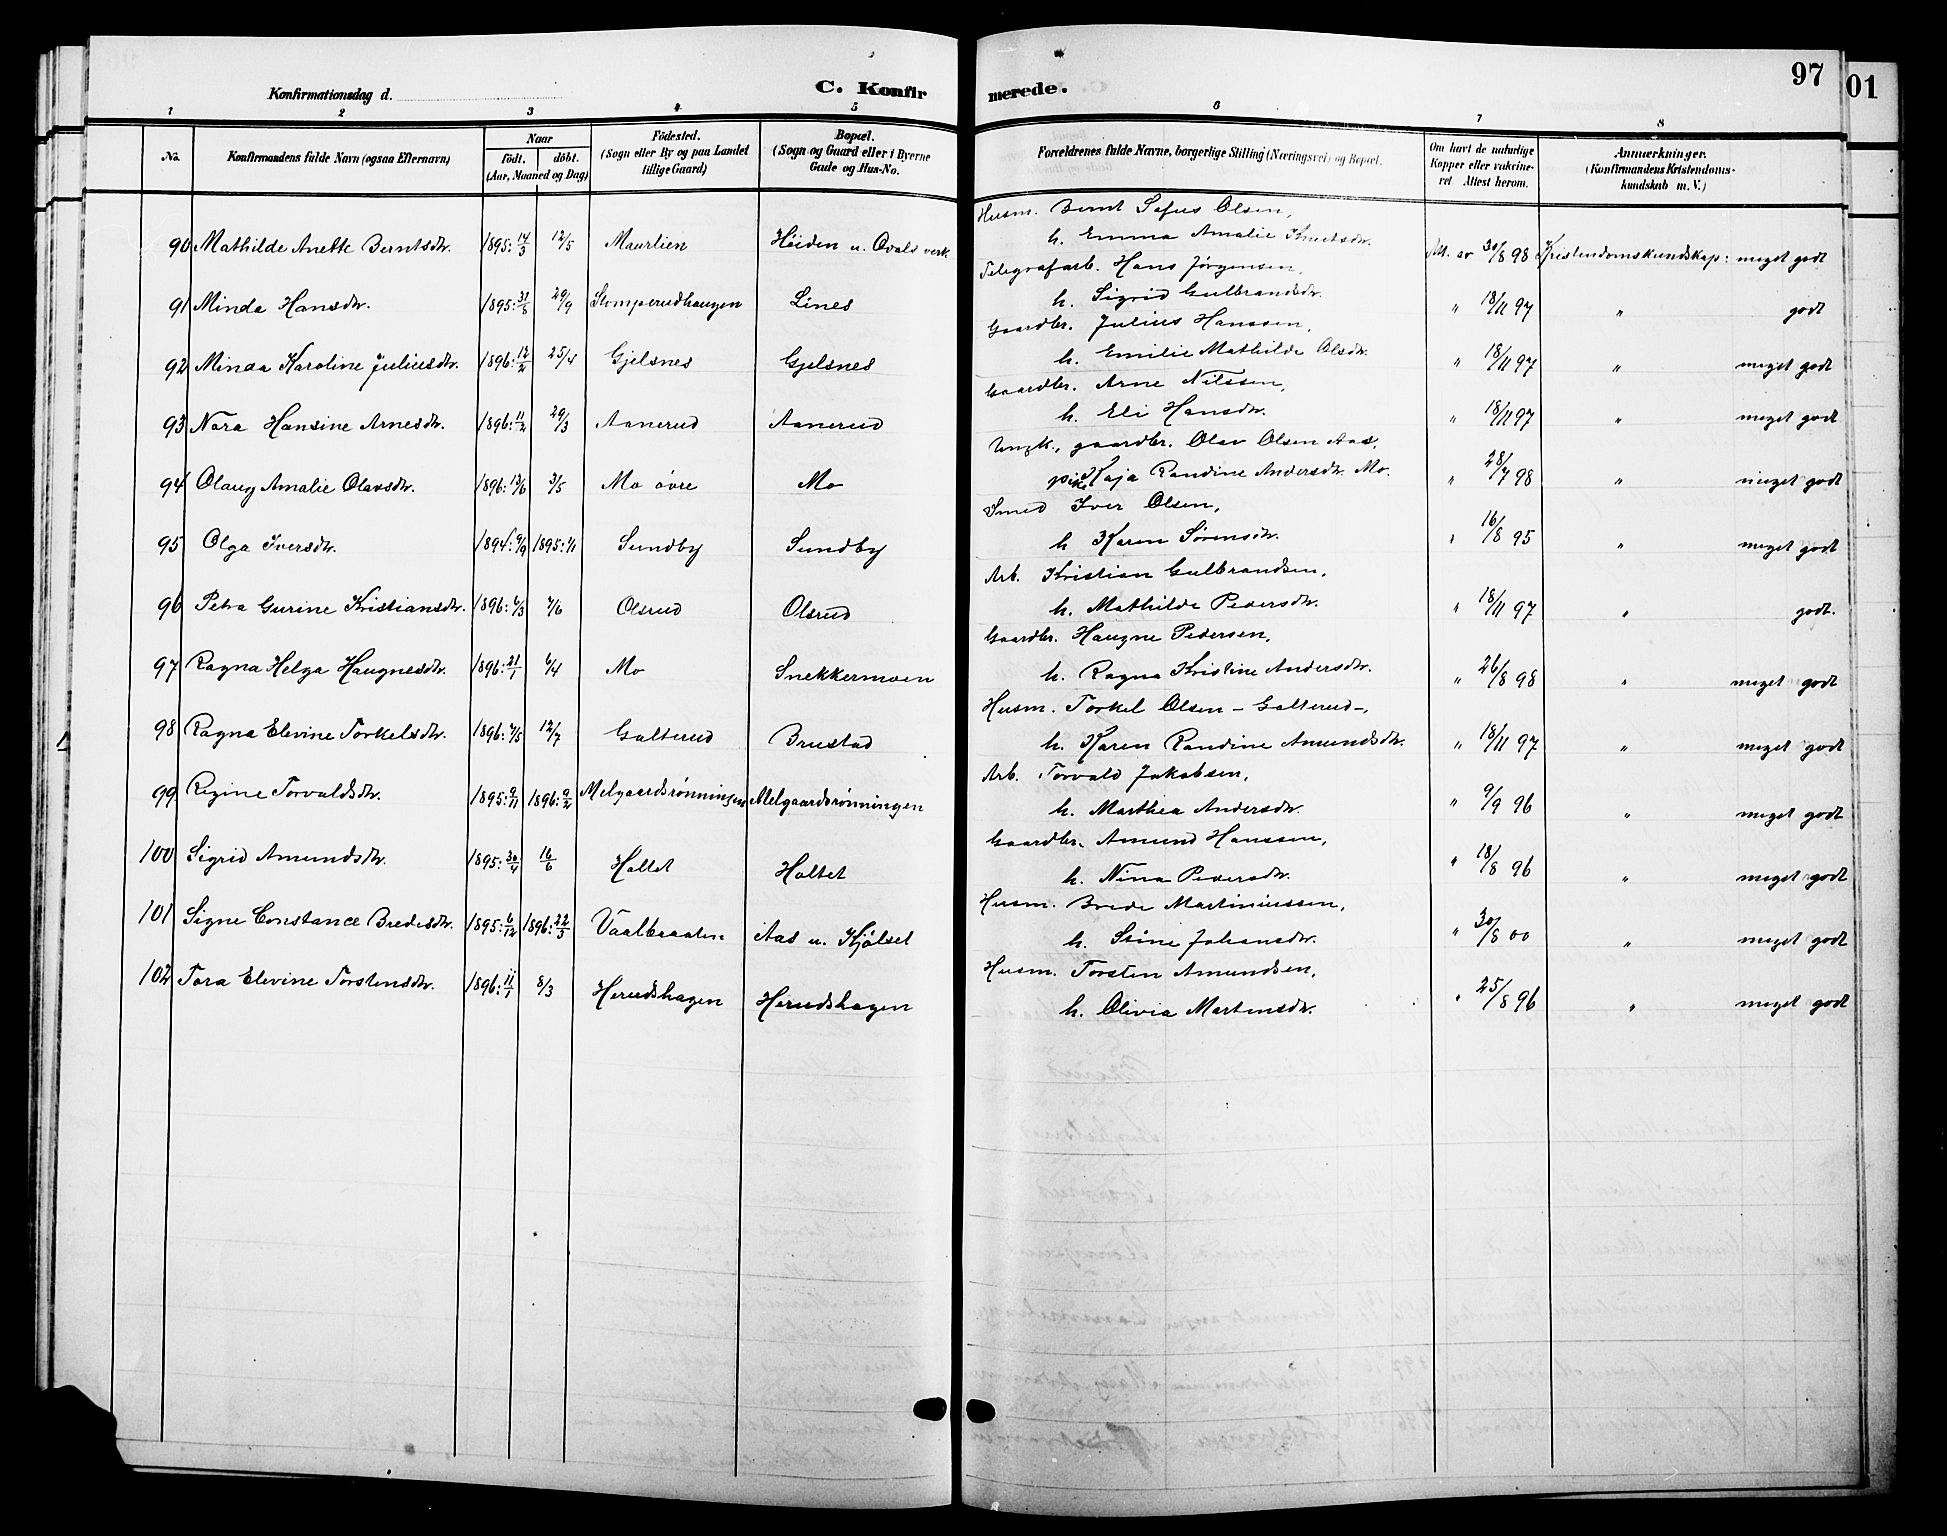 97
01
Konfirmationsdag d.
C. Konfirmerede.
1 2 3 4 5 6 7 8
No.
Konfirmandens fulde Navn (ogsaa Efternavn)
Naar
födt. döbt.
(Aar, Maaned og Dag)
Födested.
(Sogn eller By og paa Landet
tillige Gaard)
Bopæl.
(Sogn og Gaard eller i Byerne
Gade og Hus-No.
Forældrenes fulde Navne, borgerlige Stilling (Næringsvei) og Bopæl.
Om havt de naturlige
Kopper eller vakcine-
ret. Attest herom.
Anmærkninger.
(Konfirmandens Kristendoms-
kundskab m. V.)
Husm. Bernt Sefus Olsen,
90 Mathilde Anette Berntsdtr. 1895: 14/3 12/5 Maurlien Höiden u. Ovals verk h. Emma Amalie Knutsdtr. Att. av 30/8 98 Kristendomskundskap: meget godt
Telegrafarb. Hans Jørgensen,
91 Minda Hansdtr. 1895: 31/8 29/9 Stomperudhaugen Lines h. Sigrid Gulbrandsdtr. " 18/11 97 " godt
Gaardbr. Julius Hanssen,
92 Minda Karoline Juliusdtr. 1896: 12/2 25/4 Gjelsnes Gjelsnes h. Emilie Mathilde Olsdtr. " 18/11 97 " meget godt
Gaardbr. Arne Nilssen,
93 Nora Hansine Arnesdtr. 1896: 11/2 29/3 Aanerud Aanerud h. Eli Hansdtr. " 18/11 97 " meget godt
Ungk., gaardbr. Olav Olsen Aas,
94 Olaug Amalie Olavsdtr. 1896: 3/5 Mo övre Mo pike Kaja Randine Andersdtr. Mo. " 28/7 98 " meget godt
Smed Iver Olsen,
95 Olga Iversdtr. 1894: 9/9 1895: 1/1 Sundby Sundby h Karen Sørensdtr. " 16/8 95 " meget godt
Arb. Kristian Gulbrandsen,
96 Petra Gurine Kristiansdtr. 1896: 6/3 7/6 Olsrud Olsrud h. Mathilde Pedersdtr. " 18/11 97 " godt.
Gaardbr. Haugne Pedersen,
97 Ragna Helga Haugnesdtr. 1896: 21/1 6/4 Mo Snekkermoen h. Ragna Kristine Andersdtr. " 26/8 98 " meget godt
Husm. Torkel Olsen – Galterud –,
98 Ragna Elevine Torkelsdtr. 1896: 7/5 12/7 Galterud Brustad h. Karen Randine Amundsdtr. " 18/11 97 " meget godt
Arb. Torvald Jakobsen,
99 Regine Torvaldsdtr. 1895: 9/11 1896: 9/2 Melgaardsrønningen Melgaardsrønningen h. Marthea Andersdtr. " 9/9 96 " meget godt
Gaardbr. Amund Hanssen,
100 Sigrid Amundsdtr. 1895: 30/4 16/6 Holtet Holtet h. Nina Pedersdtr. " 18/8 96 " meget godt
Husm. Brede Martiniussen,
101 Signe Constance Bredesdtr. 1895: 6/12 1896: 22/3 Vaalbraaten Aas u. Kjölset h. Stine Johansdtr. " 30/8 00 " meget godt
Husm. Torsten Amundsen,
102 Tora Elevine Torstensdtr. 1896: 11/1 8/3 Herudshagen Herudshagen h. Olivia Martinsdtr. " 25/8 96 " meget godt